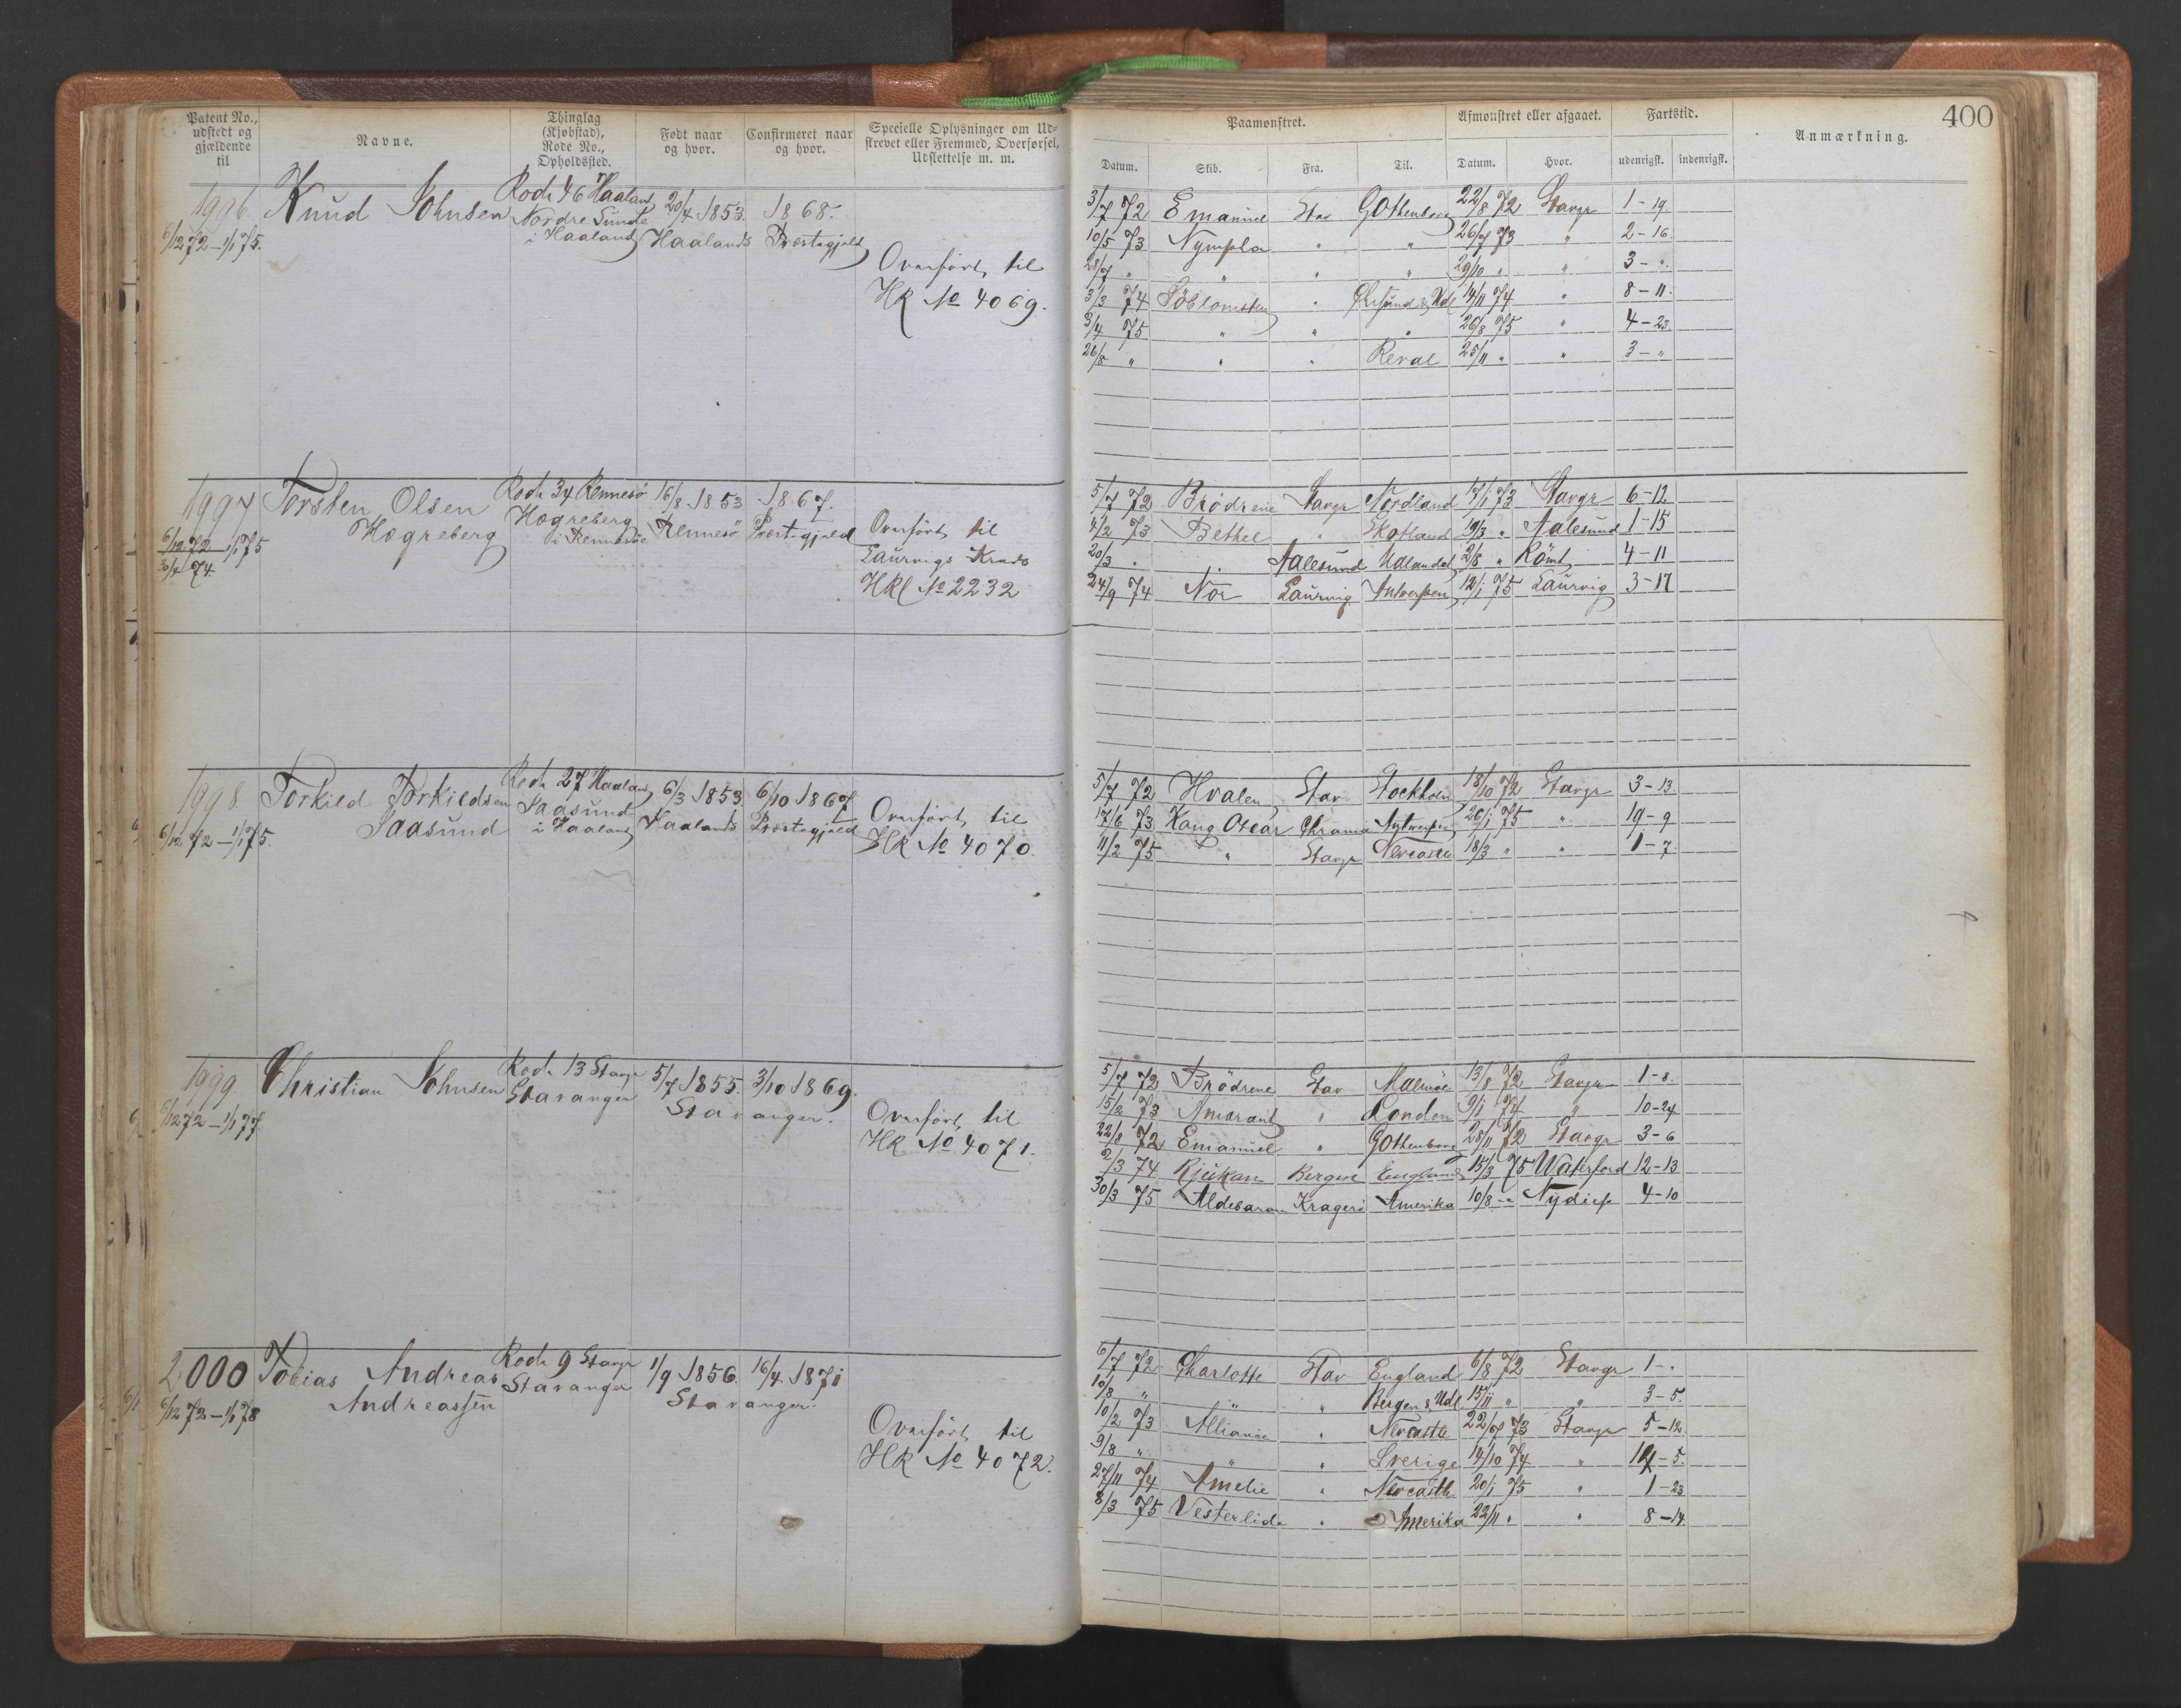 400
Patent No., udstedt og gjældende til
Navne.
Thinglag (Kjøbstad), Rode No., Opholdssted.
Født naar og hvor.
Confirmeret naar og hvor.
Specielle Oplysninger om Udstrevet eller Fremmed, Overførsel, Udslettelse m. m.
Paamønstret.
Afmønstret eller afgaaet.
Fartstid.
Anmærkning.
Datum. Skib. Fra. Til. Datum. Hvor. udenrigsk. indenrigsk.
1996. Knud Johnsen Rode 46 Haaland 20/4 1853. 1868.
6/12 72–1/1 75. Nordre Sunde i Haaland Haalands Præstegjeld
Overført til
HR No 4069.
3/7 72 Emanuel Stav Gothenborg 22/8 72 Stavgr 1–19
10/5 73 Nympha " " 26/7 73 " 2–16
28/7 " " " " 29/10 " " 3–".
3/3 74 Söblomsten " & Udl 14/11 74 " 8–11.
3/4 75 " " " 26/8 75 " 4–23
26/8 " " " Reval 25/11 " " 3–"
1997 Torsten Olsen Rode 34 Rennesö 16/8 1853 1867.
Hogreberg Hogreberg i Rennesöe Rennesö Præstegjeld
6/12 72–1/1 75
30/4 74.
Overført til
Laurvigs Krets
HRl No 2232
5/7 72 Brödrene Stavgr Nordland 17/1 73 Stavgr 6–12
4/2 73 Bethel " Skotland 19/3 " Aalesund 1–15
20/3 " " Aalesund Udlandet 2/8 " 4–11
24/9 74 Nor Laurvig Antverpen 12/1 75 Laurvig 3–17
1998. Torkild Torkildsen Rode 27 Haaland 6/3 1853. 6/10 1867
Saasund Saasund i Haaland Haalands Præstegjeld
6/12 72–1/1 75.
Overført til
HR No 4070.
5/7 72 Hvalen Stav Stockholm 18/10 72 Stavgr 3–13
17/6 73 Kong Oscar Chrania Antwerpen 26/1 75 " 19–9
11/2 75 " Stavgr Newcastle 18/3 " " 1–7
1999. Christian Johnsen Rode 13 Stavgr 5/7 1855. 3/10 1869.
6/12 72–1/1 77 Stavanger Stavanger.
Overført til
HR No 4071.
5/7 72 Brödrene Stav Malmöe 13/8 72 Stavgr 1–8.
15/2 73 Amarant " London 9/1 74 " 10–24
22/8 72 Emanuel " Gothenborg 28/11 72 Stavgr 3–6
2/3 74 Rjukan Bergen England 15/3 75 Waterford 12–13
30/3 75 Aldebaran Kragerö Amerika 10/8 – " 4–10
2000 Tobias Andreas Rode 9 Stavgr 1/9 1856. 16/4 1871
Andreassen Stavanger Stavanger.
6/12 72–1/1 78
Overført til
HR No 4072.
6/7 72 Charlotte Stav England 6/8 72 Stavgr 1–".
10/8 " " " Bergen & Udl 15/11 " " 3–5.
10/2 73 Alliance " Newcastle 22/7 73 Stavgr 5–12
9/8 " " " Sverige 14/10 74 " 14–5.
27/11 74 Amelie " Newcastle 20/1 75 " 1–23
8/3 75 Vesterlide " Amerika 22/11 " " 8–14.